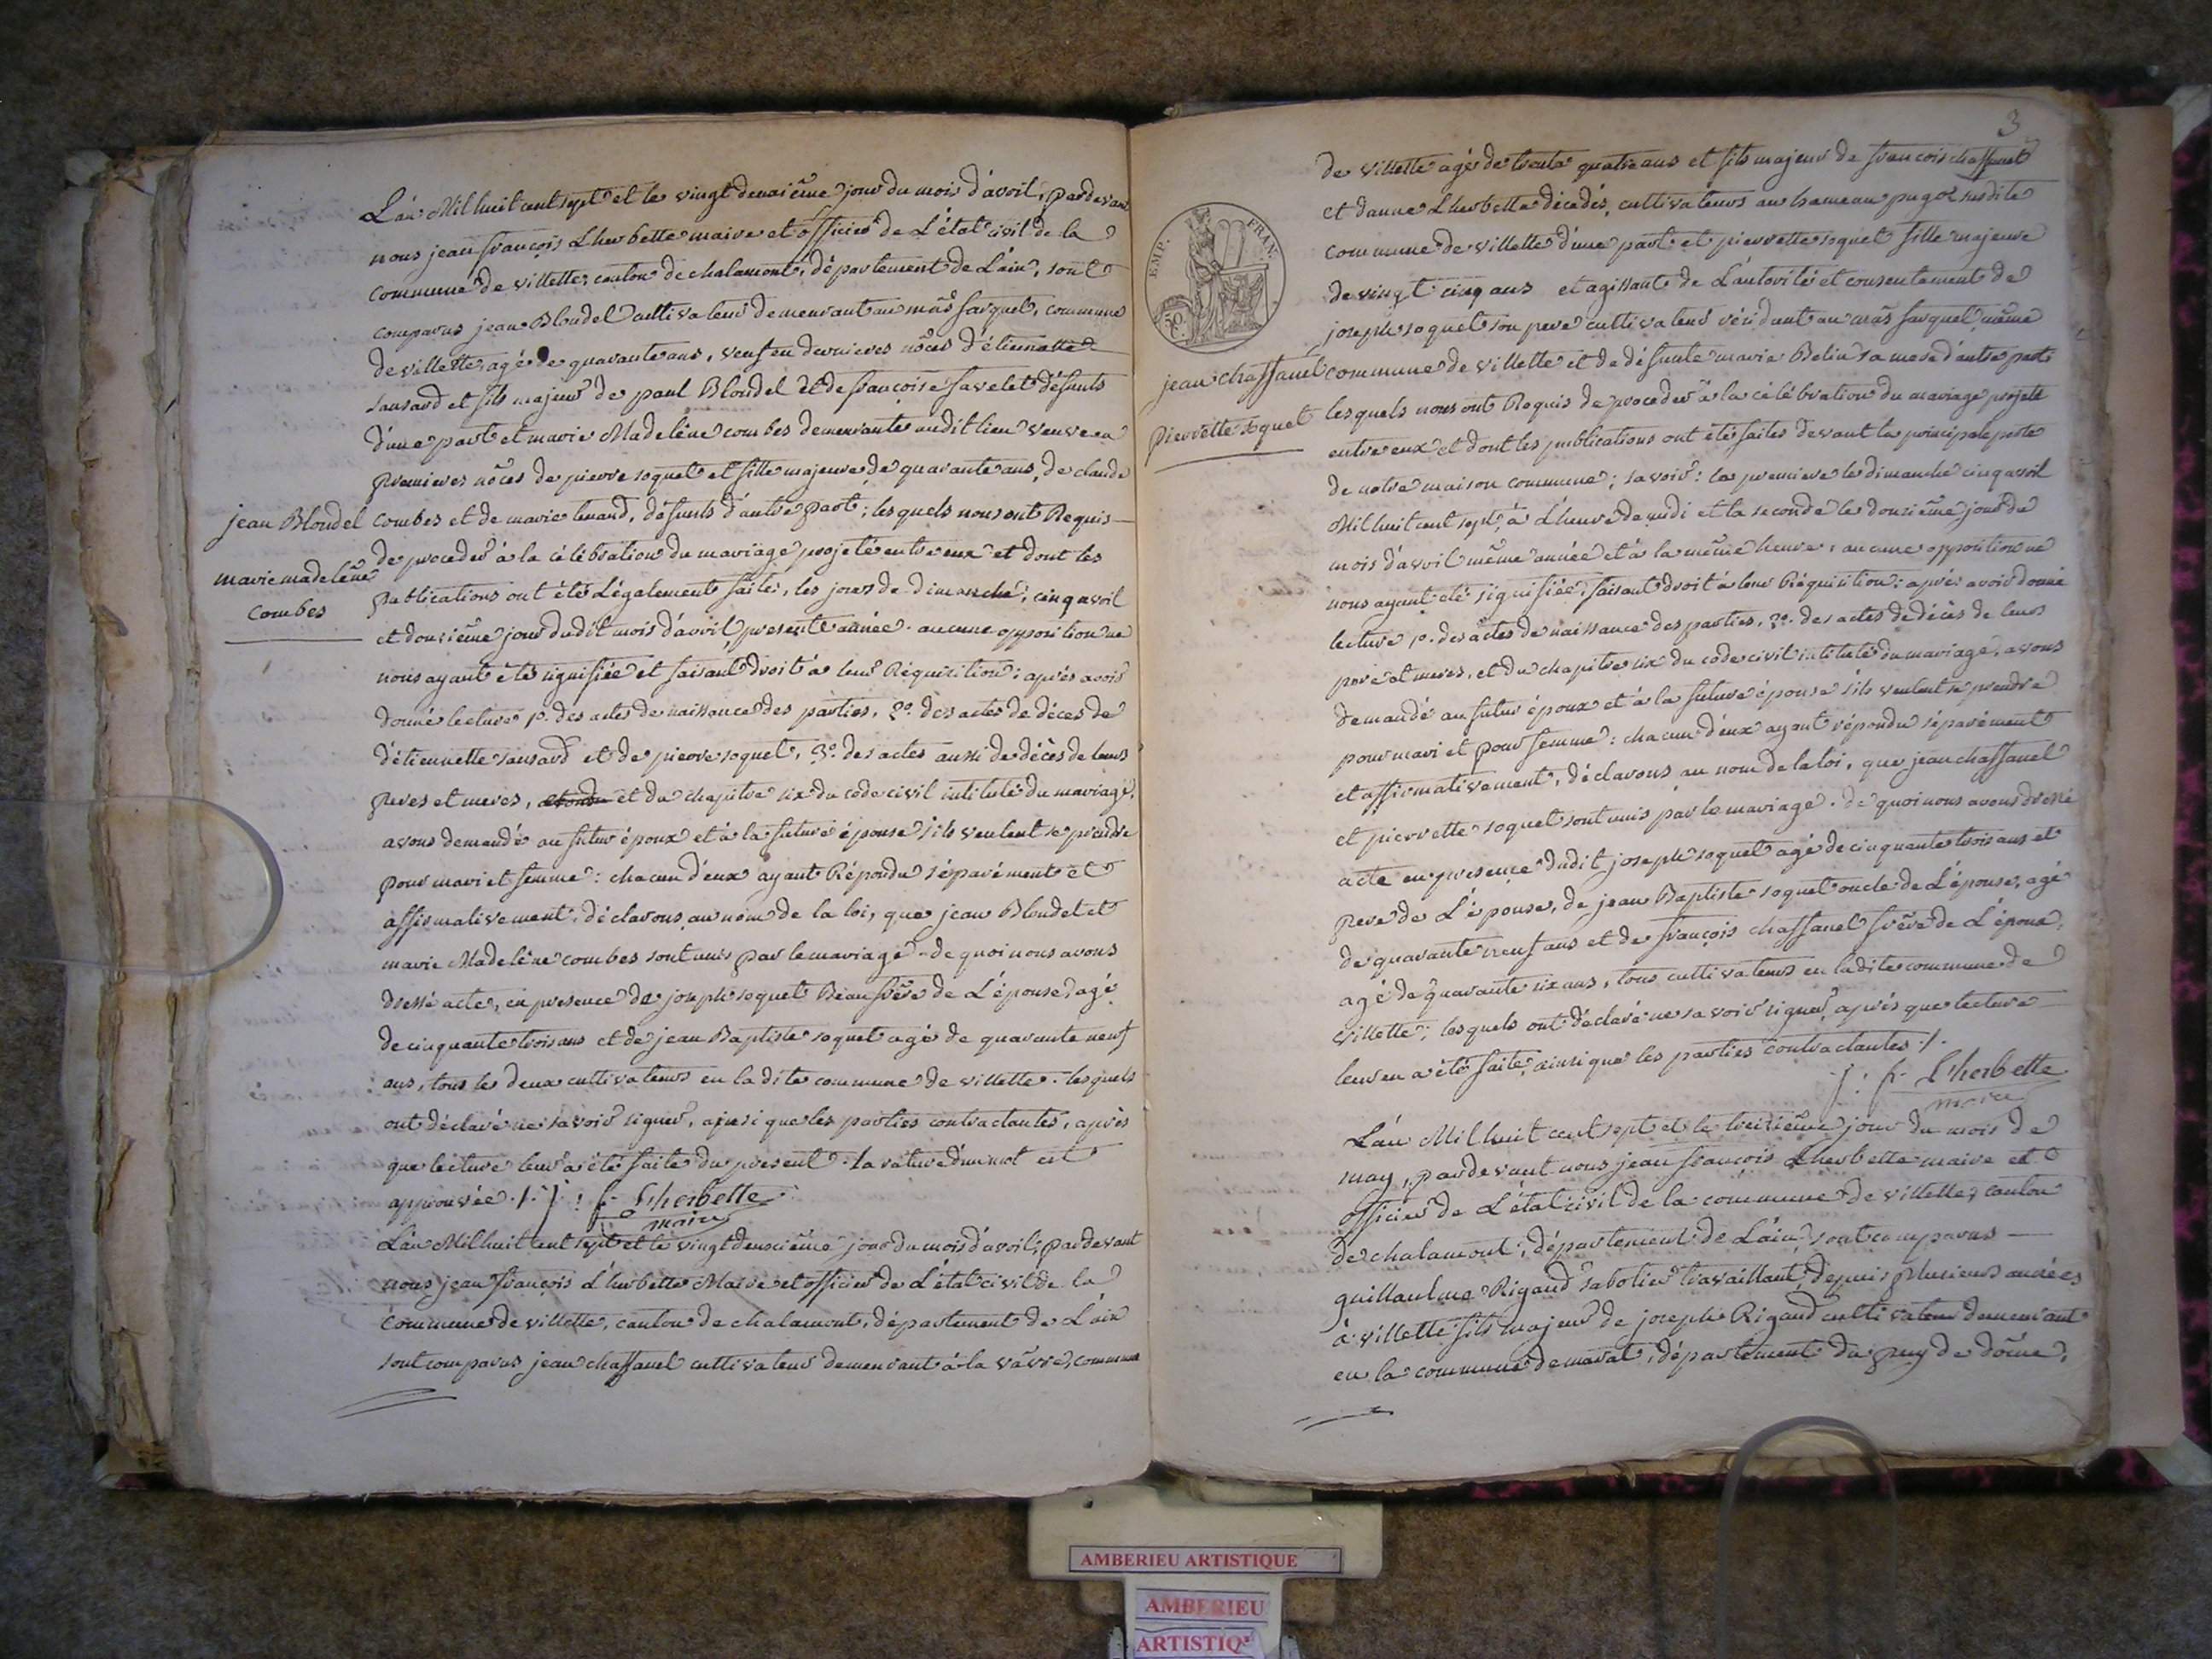 L'an Mil huit cent sept et le vingt deuxiême jour du mois d'avril, pardevant
nous jean françois Lherbette maire et officier de L'état civil de la
commune de villette, canton de chalamont, département de L'ain, sont
comparus jean Blondel cultivateur demeurant au mâs farquet, commune
de villette agé de quarante ans, veuf en dernieres nôces d'étiennette
sansard et fils majeur de paul Blondel et de françoise favelet défunts
d'une part et marie Madelêne combes demeurante audit lieu veuve en
premieres nôces de pierre soquet et fille majeure de quarante ans, de claude
jean Blondel
marie madelêne
combes
combes et de marie, défunts d'autre part; lesquels nous ont Requis
de proceder à la célébration du mariage projeté entre eux et dont les
publications ont été Légalement faites, les jours de dimanche, cinq avril
et douziême jour dudit mois d'avril, presente année. aucune opposition ne
nous ayant été signifiée et faisant droit à leur Réquisition; après avoir
donné lecture 1º. des actes de naissance des parties, 2º. des actes de déces de
d'étiennette sansard et de pierre soquet, 3º. des actes aussi de décès de leurs
peres et meres, et du chapitre six du code civil intitulé du mariage,
avons demandé au futur époux et à la future épouse s'ils veulent se prendre
pour mari et femme: chacun d'eux ayant Répondu séparément et
affirmativement, déclarons au nom de la loi, que jean Blondel et
marie Madelêne combes sont unis par le mariage. de quoi nous avons
dressé acte, en presence de joseph soquet Beau frêre de L'épouse, agé
de cinquante trois ans et de jean Baptiste soquet agé de quarante neuf
ans, tous les deux cultivateurs en la dite commune de villette. lesquels
ont déclaré ne savoir signer, ainsi que les parties contractantes, après
que lecture leur a été faite du present. la rature d'un mot est
approuvée ./. j: f- Lherbette
maire
L'an Mil huit cent sept et le vingt deuxiême jour du mois d'avril; pardevant
nous jean françois Lherbette Maire et officier de L'état civil de la
commune de villette, canton de chalamont, département de L'ain
sont comparus jean chaffanel cultivateur demeurant à la vâvre, commune
3
EMP. FRAN.
50
de villette agé de trente quatre ans et fils majeur de françois chaffanel
et d'anne Lherbette décédés, cultivateurs au hameau pugoz susdite
commune de villette d'une part et pierrette soquet fille majeure
de vingt cinq ans et agissante de L'autorité et consentement de
joseph soquet son pere cultivateur résidant au mâs farquet même
jean chaffanel
pierrette soquet
commune de villette et de défunte marie Belin sa mere d'autre part
lesquels nous ont Requis de proceder à la célébration du mariage projeté
entre eux et dont les publications ont été faites devant la principale porte
de notre maison commune; savoir: la premiere le dimanche cinq avril
Mil huit cent sept, à L'heure de midi et la seconde le douziême jour du
mois d'avril même année et à la même heure; aucune opposition ne
nous ayant eté signifiée, faisant droit à leur Réquisition: après avoir donné
lecture 1º. des actes de naissance des parties, 2º. des actes de décès de leurs
pere et meres, et du chapitre six du code civil intitulé du mariage, avons
demandé au futur époux et à la future épouse s'ils veulent se prendre
pour mari et pour femme: chacun d'eux ayant répondu séparément
et affirmativement, déclarons au nom de la loi, que jean chaffanel
et pierrette soquet sont unis par le mariage. de quoi nous avons dressé
acte en presence dudit joseph soquet agé de cinquante trois ans et
pere de L'épouse, de jean Baptiste soquet oncle de L'épouse, agé
de quarante neuf ans et de françois chaffanel frêre de L'époux,
agé de quarante six ans, tous cultivateurs en ladite commune de
villette; lesquels ont déclaré ne savoir signer, après que lecture
leur en a été faite, ainsi que les parties contractantes ./.
j: f- Lherbette
maire
L'an Mil huit cent sept et le treiziême jour du mois de
may, pardevant nous jean françois Lherbette maire et
officier de L'état civil de la commune de villette, canton
de chalamont, département de L'ain, sont comparus
guillaulme Rigaud sabotier travaillant depuis plusieurs années
à villette fils majeur de joseph Rigaud cultivateur demeurant
en la commune de marat, département du puy de dôme,
AMBERIEU ARTISTIQUE
AMBERIEU
ARTISTIQ